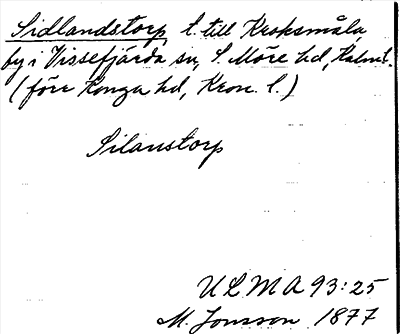 Sidlandstorp, t. till Kroksmåla,
by i Vissefjärda sn, S. Möre hd, Kalm. l.
(förr Konga hd, Kron. l.)
Silanstorp
ULMA 93:25
M. Jonsson 1877